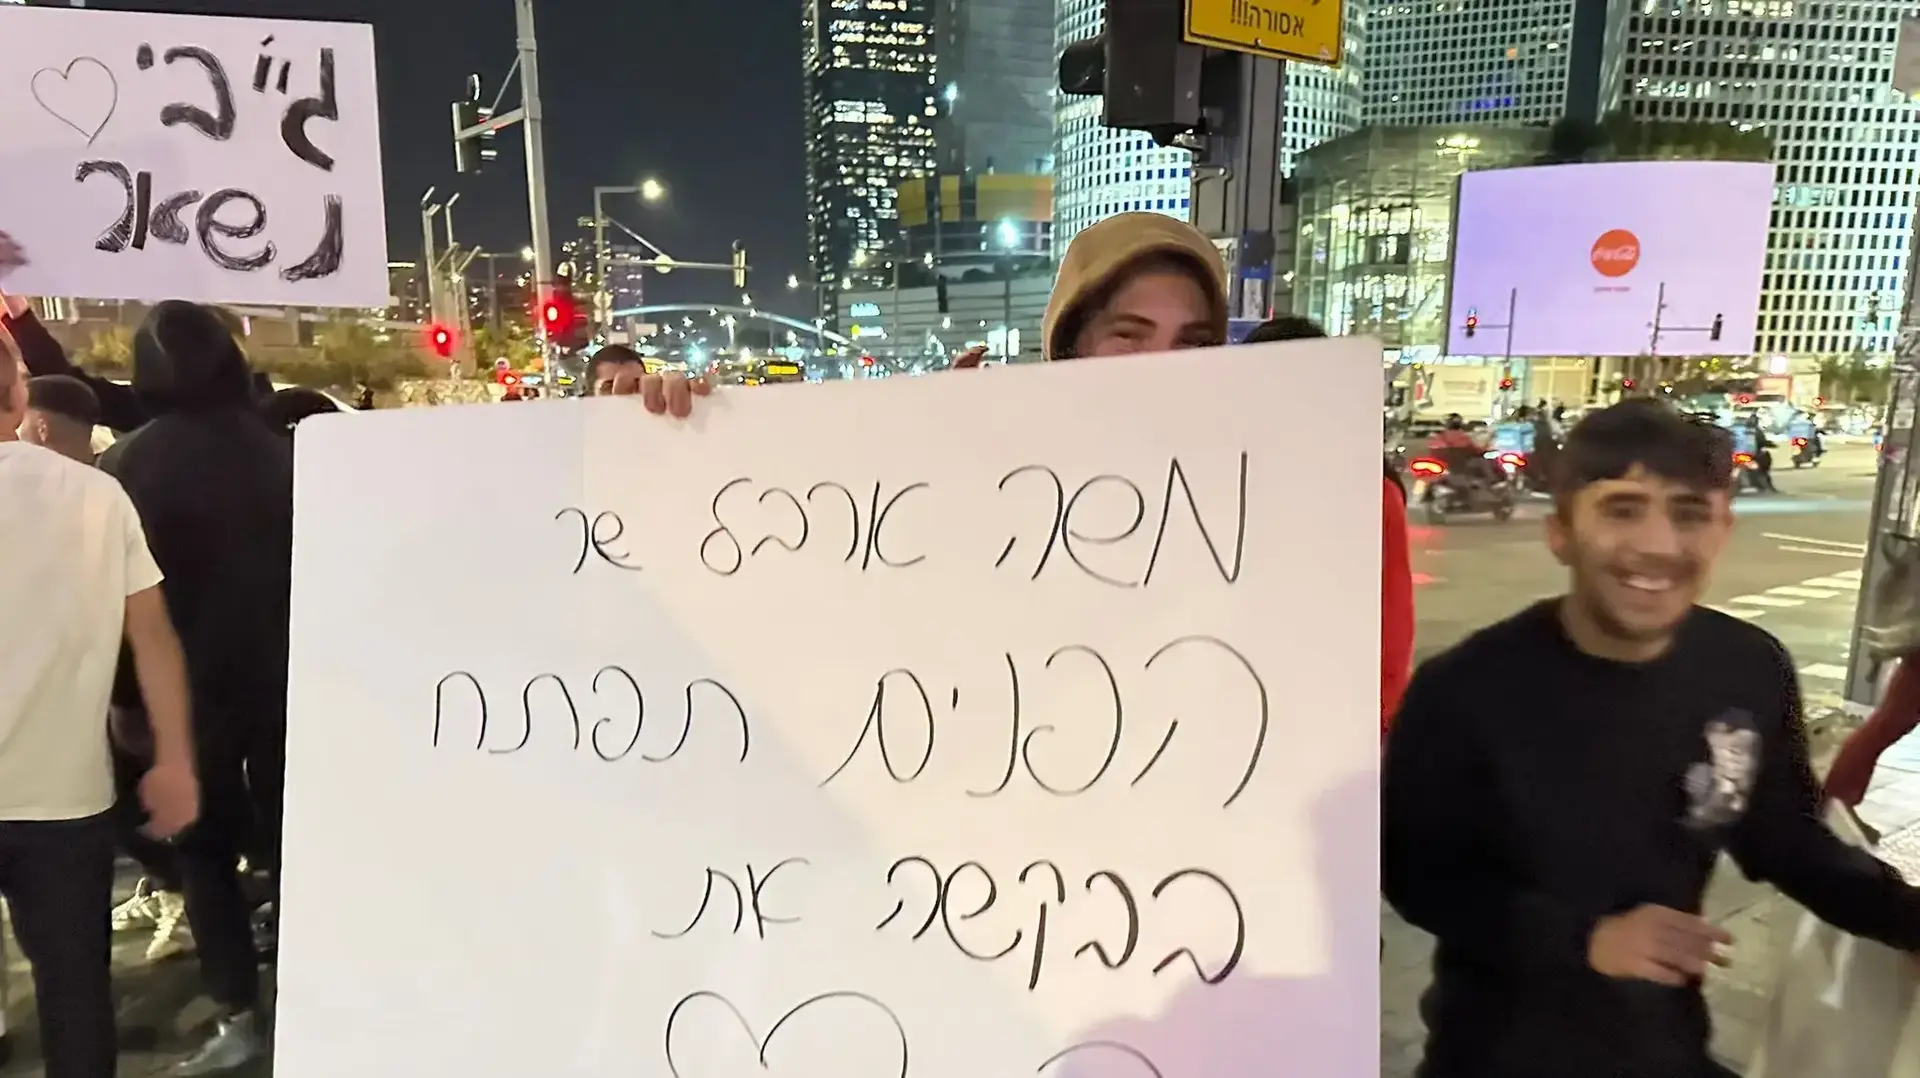 ג'ייבי
נשאר
אסורה!!!
משה ארבל שר
הפנים תפתח
בבקשה את
Coca-Cola